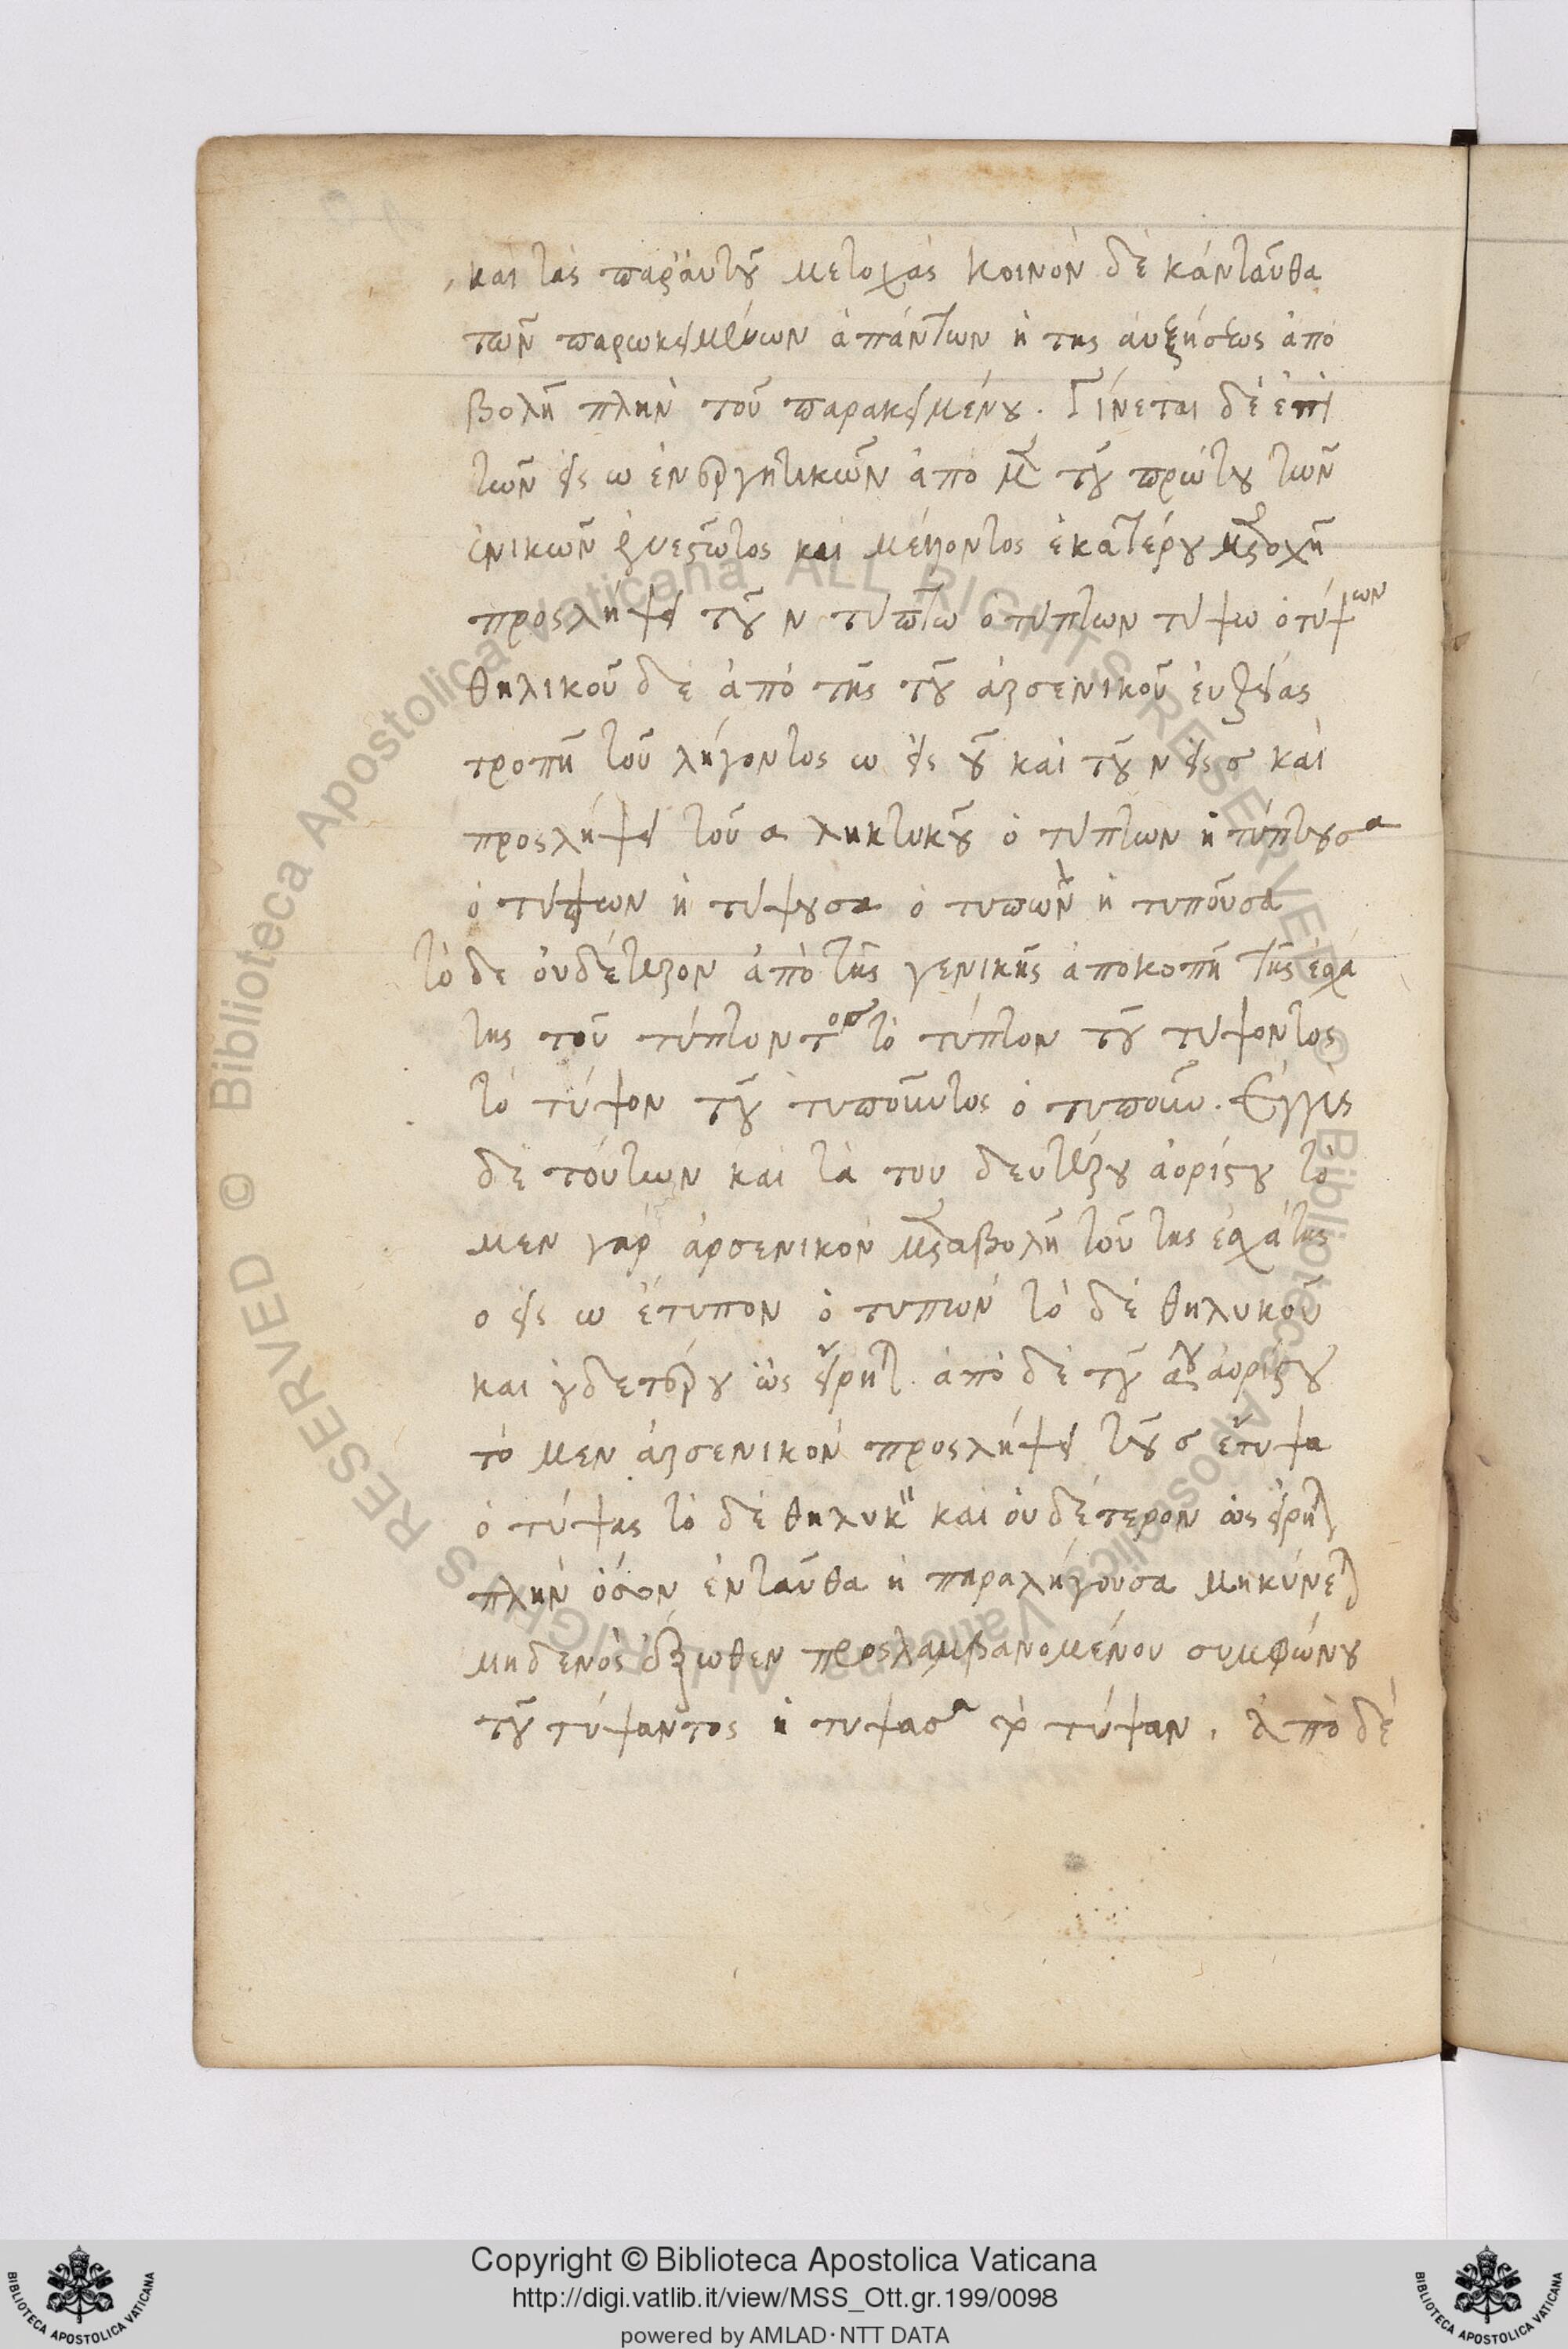 καὶ τὰς παρ' αὐτοῦ μετοχάς κοινὸν δὲ κἀνταῦθα
τῶν παρωκειμένων ἁπάντων ἡ της αὐξήσεως ἀπο
βολὴ πλὴν τοῦ παρακειμένου. Γίνεται δὲ ἐπὶ
τῶν εἰς ω ἐνεργητικῶν ἀπὸ μὲν τοῦ πρώτου τῶν
ἑνικῶν ἐνεστῶτος καὶ μέλλοντος ἑκατέρου μετοχὴ
προσλήψει τοῦ ν τύπτω ὁ τύπτων τύψω ὁ τύψων
θηλικοῦ δὲ ἀπὸ τῆς τοῦ ἀρσενικοῦ εὐθείας
τροπῇ τοῦ λήγοντος ω εἰς ου καὶ τοῦ ν εἰς σ καὶ
προσλήψει τοῦ α ληκτικοῦ ὁ τύπτων ἡ τύπτουσα
ὁ τύψων ἡ τύψουσα ὁ τυπῶν ἡ τυποῦσα
τὸ δε οὐδέτερον ἀπὸ τῆς γενικῆς ἀποκοπῇ τῆς ἐσχά
της τοῦ τύπτοντος τὸ τύπτον τοῦ τύψοντος
τὸ τύψον τοῦ τυποῦντος ὁ τυποῦν. Ἐγγὺς
δε τούτων καὶ τὰ του δευτέρου ἀορίστου τὸ
μεν γαρ ἀρσενικὸν μεταβολῇ τοῦ της ἐσχάτης
ο εἰς ω ἔτυπον ὁ τυπών τὸ δὲ θηλυκοῦ
και οὐδετέρου ὡς εἴρηται. ἀπὸ δὲ τοῦ αου ἀορίστου
τὸ μεν ἀρσενικὸν προσλήψει τοῦ σ ἔτυψα
ὁ τύψας τὸ δὲ θηλυκὸν καὶ οὐδέτερον ὡς εἴρηται
πλὴν ὅσον ἐνταῦθα ἡ παραλήγουσα μηκύνεται
μηδενὸς ἔξωθεν προσλαμβανομένου συμφώνου
τοῦ τύψαντος ἡ τυψασα τὸ τύψαν. Ἀπὸ δὲ
Copyright © Biblioteca Apostolica Vaticana
http://digi.vatlib.it/view/MSS_Ott.gr.199/0098
powered by AMLAD·NTT DATA